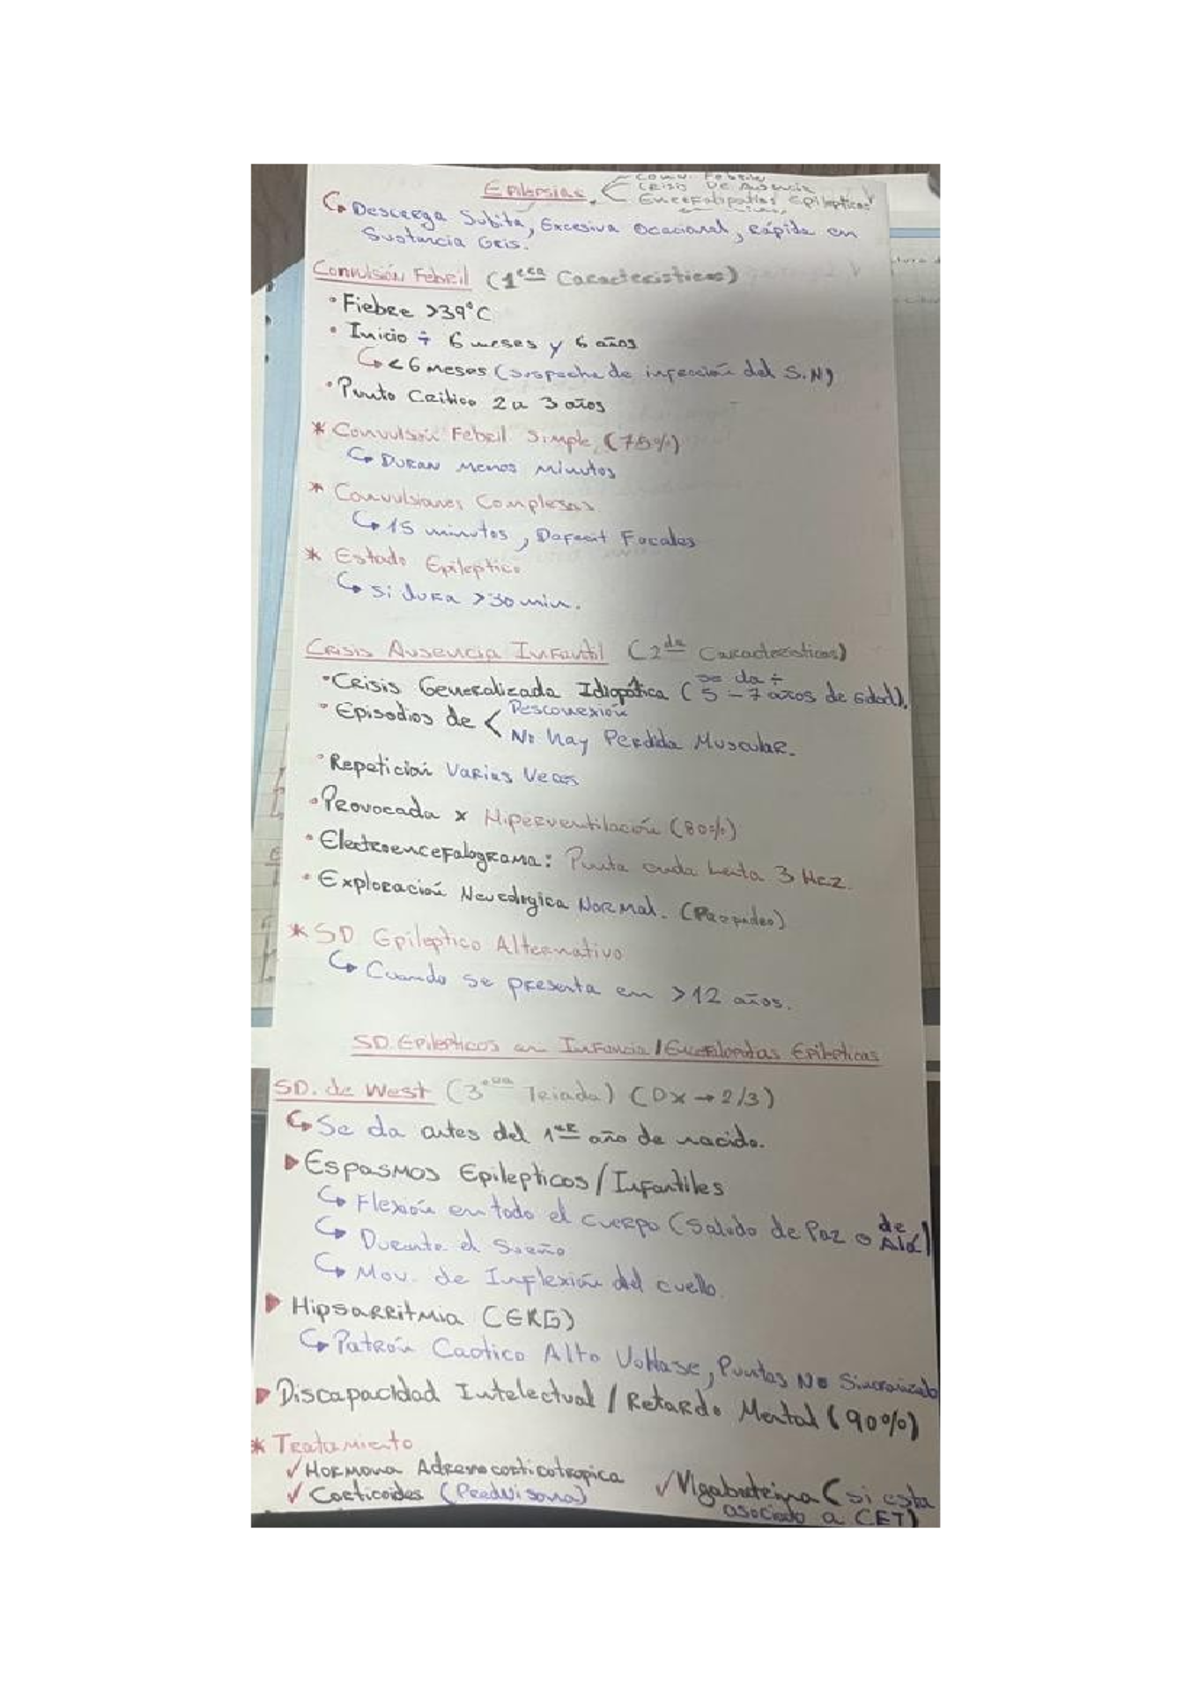 Epilepsias. Conv. Febril
Crisis De Ausencia
Encefalopatías Epilepticas
Descarga Subita, Excesiva Ocacional, Rápida en
Sustancia Gris.
Convulsión Febril (1era Caracteristicas)
• Fiebre >39°C
• Inicio ÷ 6 meses y 6 años
< 6 meses (sospecha de infección del S.N)
• Punto Critico 2 a 3 años
* Convulsión Febril Simple (75%)
Duran menos minutos
* Convulsiones Complejas
15 minutos, Deficit Focales
* Estado Epileptico
Si dura >30 min.
Crisis Ausencia Infantil (2da Caracteristicas)
• Crisis Generalizada Idiopática (se da ÷ 5 - 7 años de edad).
• Episodios de < Desconexión
No hay Perdida Muscular.
• Repetición Varias Veces
• Provocada x Hiperventilación (80%)
• Electroencefalograma: Punta onda lenta 3 Hez.
• Exploración Neurologica Normal. (Parpadeo)
* SD Epileptico Alternativo
Cuando se presenta en >12 años.
SD. Epilepticos en Infancia / Encefalopatias Epilepticas
SD. de West (3era Triada) (Dx → 2/3)
Se da antes del 1er año de nacido.
Espasmos Epilepticos / Infantiles
Flexión en todo el cuerpo (Saludo de Paz o de Alá)
Durante el Sueño
Mov. de Inflexión del cuello.
Hipsarritmia (EKG)
Patrón Caotico Alto Voltaje, Puntas No Sincronizado
Discapacidad Intelectual / Retardo Mental (90%)
* Tratamiento
✓ Hormona Adrenocorticotropica ✓ Vigabatrina (si esta
✓ Corticoides (Prednisona) asociado a CET)